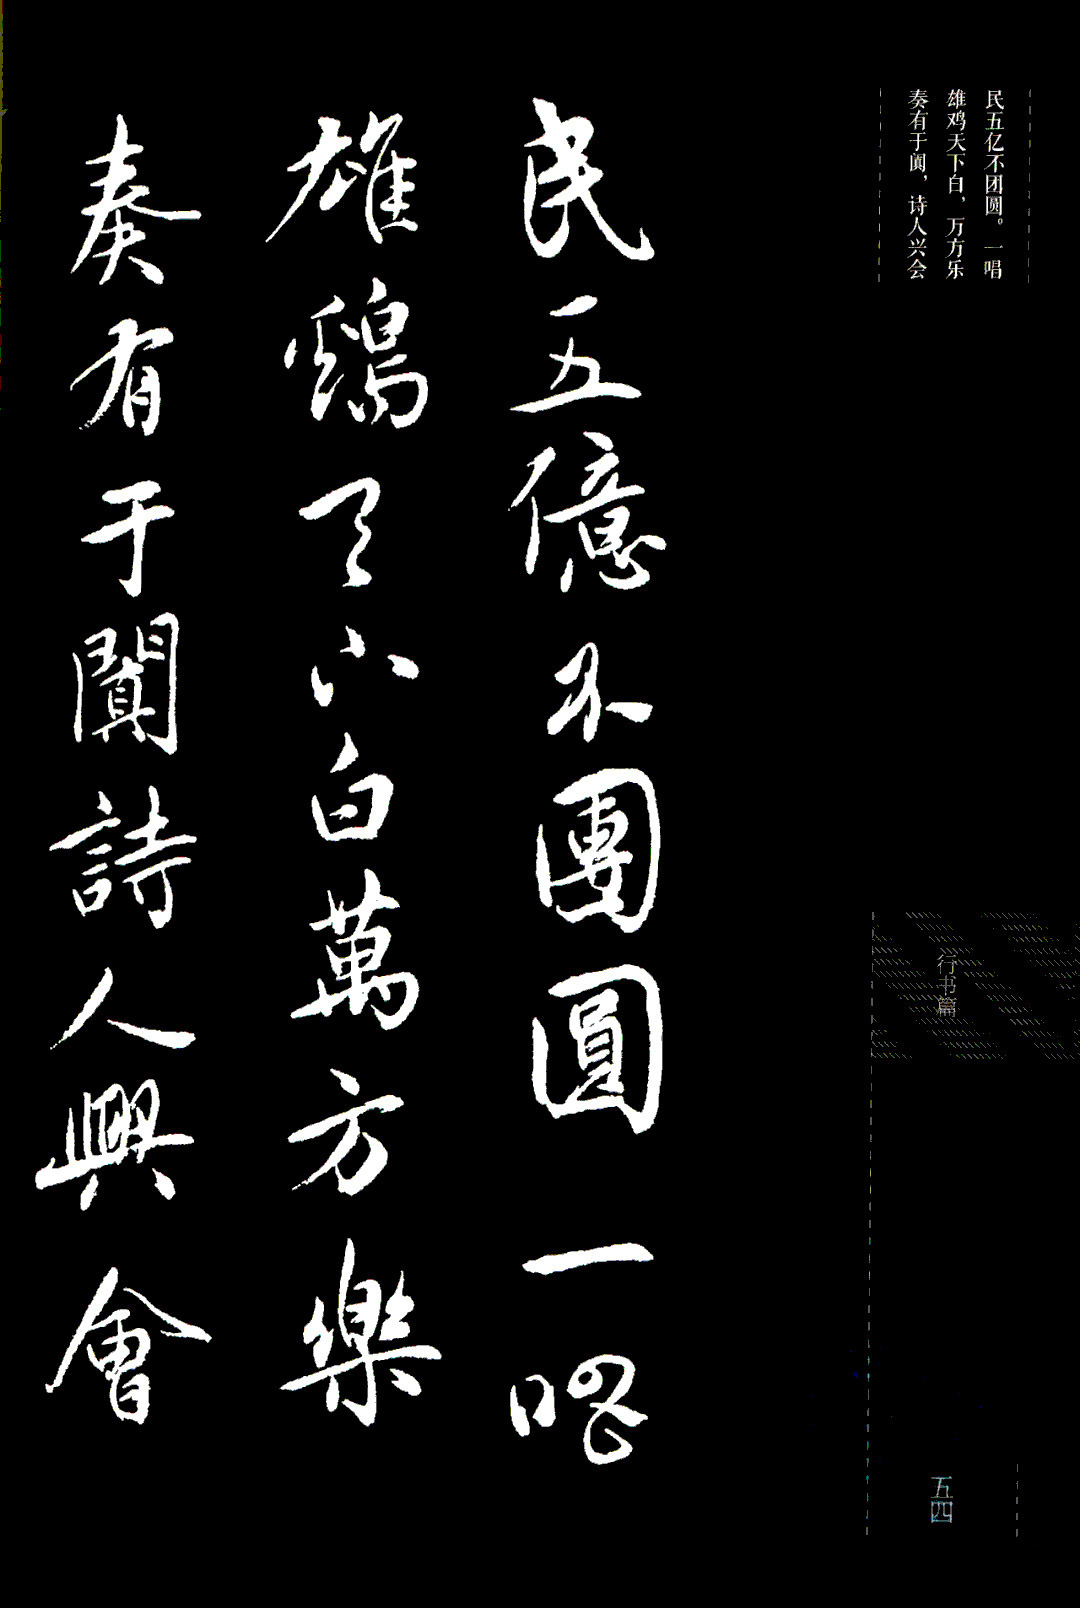 民五亿不团圆。一唱
雄鸡天下白，万方乐
奏有于阗，诗人兴会
民五億不團圓一唱
雄鷄天下白萬方樂
奏有于闐詩人興會
行书篇
五四